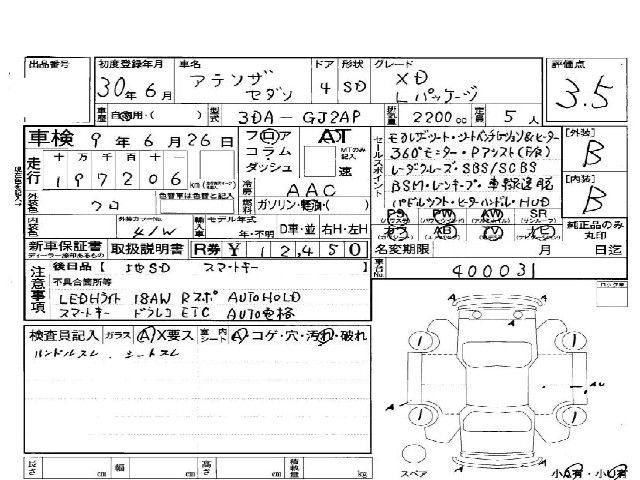 出品番号
初度登録年月
30年6月
車名
アテンザ
セダン
ドア 形状
4 SD
グレード
XD
Lパッケージ
評価点
3.5
車歴 自家用・( )
型式 3DA-GJ2AP
排気量 2200cc
定員 5人
車検 9年6月26日
フロア
コラム・
ダッシュ
AT
MTのみ記入
速
セールスポイント
360°モニター・Pアシスト(F/R)
レーダクルーズ・SBS/SCBS
BSM・レンキープ・車線逸脱
PS PW AW SR
[外装]
B
[内装]
B
純正品のみ
丸印
走行
十 万 千 百 十 一
197206 km
外装色 クロ
色替車は色替と記入
冷房 AAC
燃料 ガソリン・軽油・( )
内装色
外装カラーNo. 41W
輸入車 モデル年式
年・不明
D車・並 右H・左H
新車保証書
ディーラー捺印あるもの
取扱説明書
R券 ¥12,450
名変期限 月 日迄
車台No. 400031
注意事項
後日品[ 地SD スマートキー ]
不具合箇所等
LEDHライト 18AW Rスポ AUTOHOLD
スマートキー ドラレコ ETC AUTO電格
ロック車
検査員記入 ガラス A・X要ス 室内シート A・コゲ・穴・汚れ・破れ
ハンドルスレ、シートスレ
A
A
AU
A
スペア
小A有・小U有
長さ cm 幅 cm 高さ cm 積載量 kg